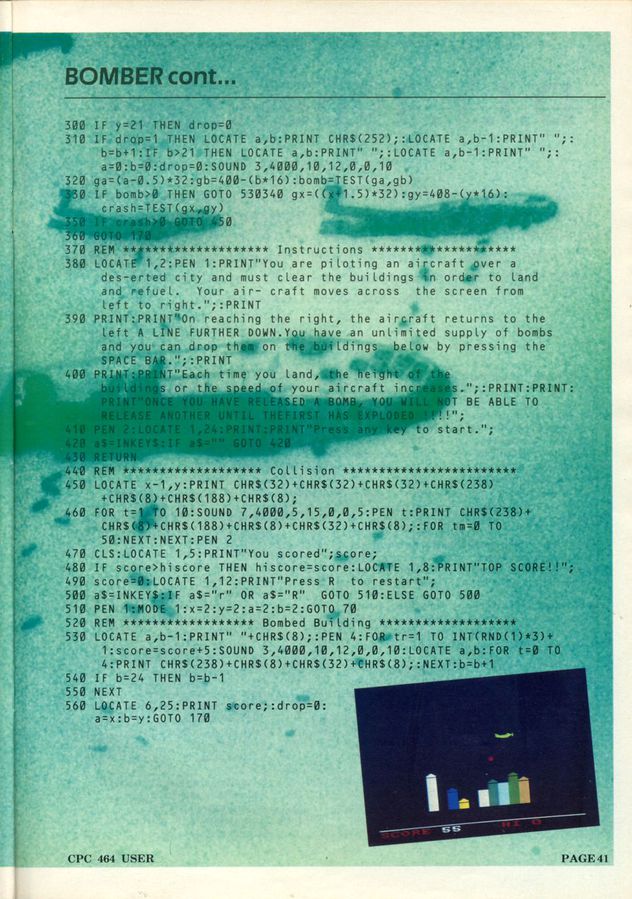 BOMBER cont...
300 IF y=21 THEN drop=0
310 IF drop=1 THEN LOCATE a,b:PRINT CHR$(252);:LOCATE a,b-1:PRINT" ";:
b=b+1:IF b>21 THEN LOCATE a,b:PRINT" ";:LOCATE a,b-1:PRINT" ";:
a=0:b=0:drop=0:SOUND 3,4000,10,12,0,0,10
320 ga=(a-0.5)*32:gb=400-(b*16):bomb=TEST(ga,gb)
330 IF bomb>0 THEN GOTO 530340 gx=((x+1.5)*32):gy=408-(y*16):
crash=TEST(gx,gy)
350 IF crash>0 GOTO 450
360 GOTO 170
370 REM ******************** Instructions ********************
380 LOCATE 1,2:PEN 1:PRINT"You are piloting an aircraft over a
des-erted city and must clear the buildings in order to land
and refuel. Your air- craft moves across the screen from
left to right.";:PRINT
390 PRINT:PRINT"On reaching the right, the aircraft returns to the
left A LINE FURTHER DOWN.You have an unlimited supply of bombs
and you can drop them on the buildings below by pressing the
SPACE BAR.";:PRINT
400 PRINT:PRINT"Each time you land, the height of the
buildings or the speed of your aircraft increases.";:PRINT:PRINT:
PRINT"ONCE YOU HAVE RELEASED A BOMB, YOU WILL NOT BE ABLE TO
RELEASE ANOTHER UNTIL THEFIRST HAS EXPLODED !!!!";
410 PEN 2:LOCATE 1,24:PRINT:PRINT"Press any key to start.";
420 a$=INKEY$:IF a$="" GOTO 420
430 RETURN
440 REM ******************* Collision ************************
450 LOCATE x-1,y:PRINT CHR$(32)+CHR$(32)+CHR$(32)+CHR$(238)
+CHR$(8)+CHR$(188)+CHR$(8);
460 FOR t=1 TO 10:SOUND 7,4000,5,15,0,0,5:PEN t:PRINT CHR$(238)+
CHR$(8)+CHR$(188)+CHR$(8)+CHR$(32)+CHR$(8);:FOR tm=0 TO
50:NEXT:NEXT:PEN 2
470 CLS:LOCATE 1,5:PRINT"You scored";score;
480 IF score>hiscore THEN hiscore=score:LOCATE 1,8:PRINT"TOP SCORE!!";
490 score=0:LOCATE 1,12:PRINT"Press R to restart";
500 a$=INKEY$:IF a$="r" OR a$="R" GOTO 510:ELSE GOTO 500
510 PEN 1:MODE 1:x=2:y=2:a=2:b=2:GOTO 70
520 REM ****************** Bombed Building *******************
530 LOCATE a,b-1:PRINT" "+CHR$(8);:PEN 4:FOR tr=1 TO INT(RND(1)*3)+
1:score=score+5:SOUND 3,4000,10,12,0,0,10:LOCATE a,b:FOR t=0 TO
4:PRINT CHR$(238)+CHR$(8)+CHR$(32)+CHR$(8);:NEXT:b=b+1
540 IF b=24 THEN b=b-1
550 NEXT
560 LOCATE 6,25:PRINT score;:drop=0:
a=x:b=y:GOTO 170
SCORE 55 HI 0
CPC 464 USER PAGE 41